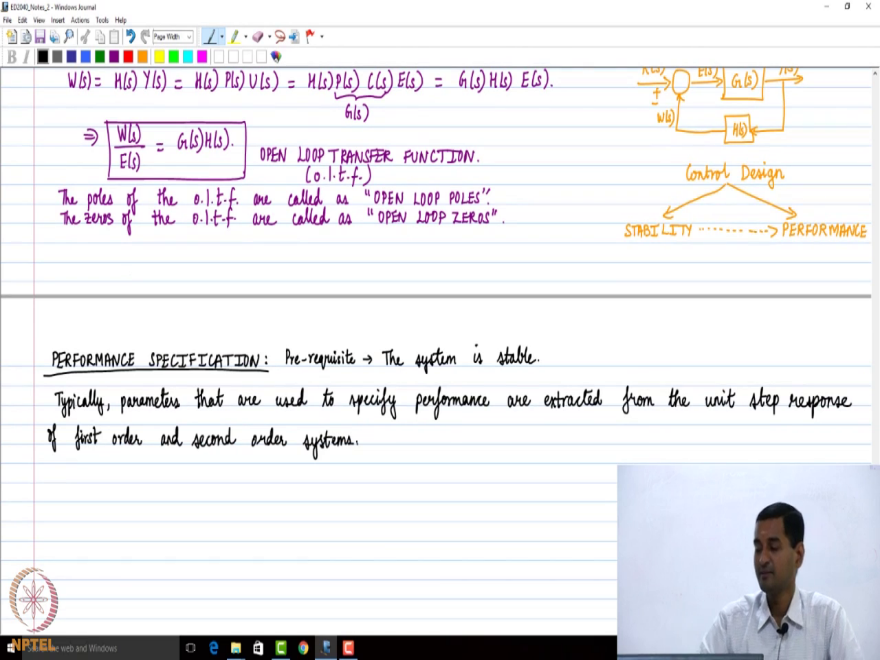 ED2040_Notes_2 - Windows Journal
File Edit View Insert Actions Tools Help
Page Width
B I
W(s) = H(s) Y(s) = H(s) P(s) U(s) = H(s) P(s) C(s) E(s) = G(s) H(s) E(s).
G(s)
⇒ W(s)/E(s) = G(s)H(s).
OPEN LOOP TRANSFER FUNCTION.
(o.l.t.f.)
The poles of the o.l.t.f. are called as "OPEN LOOP POLES".
The zeros of the o.l.t.f. are called as "OPEN LOOP ZEROS".
E(s) G(s)
+
±
W(s)
H(s)
Control Design
STABILITY ........---> PERFORMANCE
PERFORMANCE SPECIFICATION: Pre-requisite → The system is stable.
Typically, parameters that are used to specify performance are extracted from the unit step response
of first order and second order systems.
NPTEL
the web and Windows